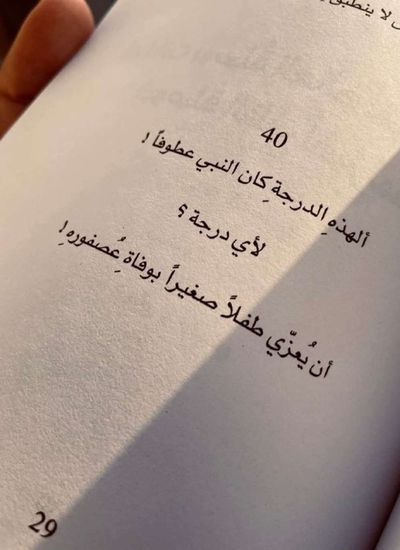 لا ينطبق
40
ألهذهِ الدرجة كِان النبي عطوفاً !
لأي درجة ؟
أن يُعزّي طفلاً صغيراً بوفاة عُِصفوره !
29